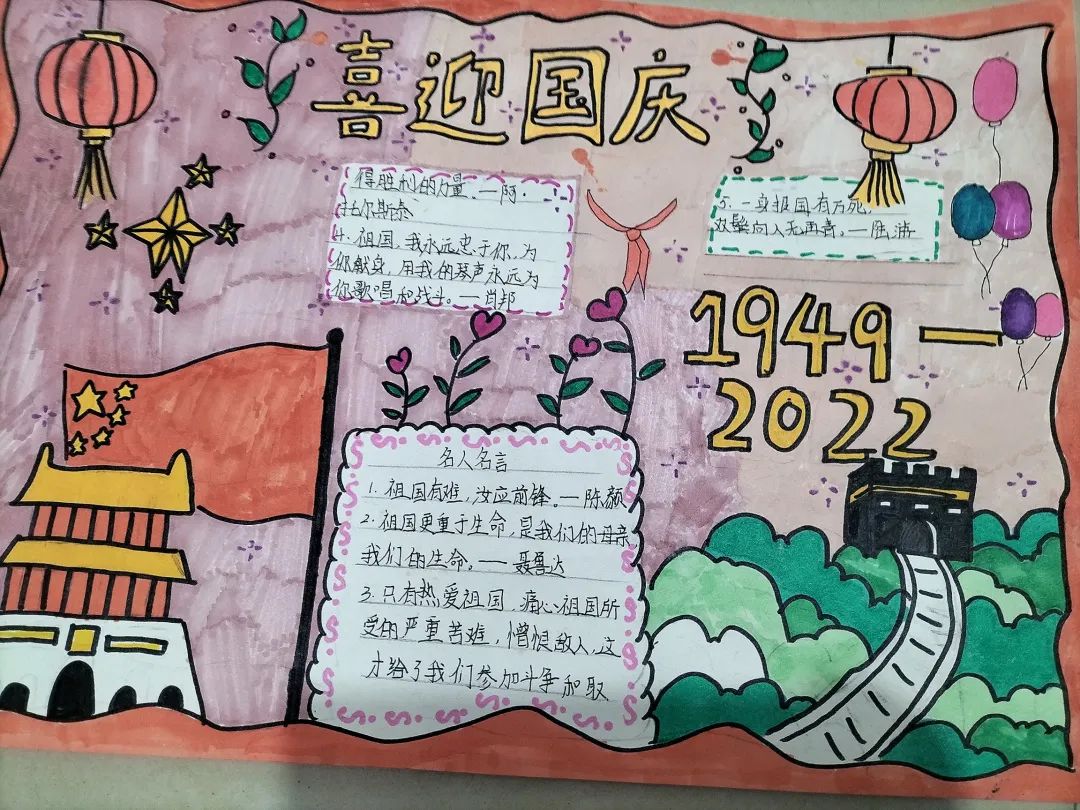 喜迎国庆
名人名言
1. 祖国有难，汝应前锋。—陈颜
2. 祖国更重于生命，是我们的母亲
我们的生命。—聂鲁达
3. 只有热爱祖国，痛心祖国所
受的严重苦难，憎恨敌人，这
才给了我们参加斗争和取
得胜利的力量。—阿·
托尔斯泰
4. 祖国，我永远忠于你，为
你献身，用我的琴声永远为
你歌唱和战斗。—肖邦
5. 一身报国有万死，
双鬓向人无再青。—陆游
1949—
2022